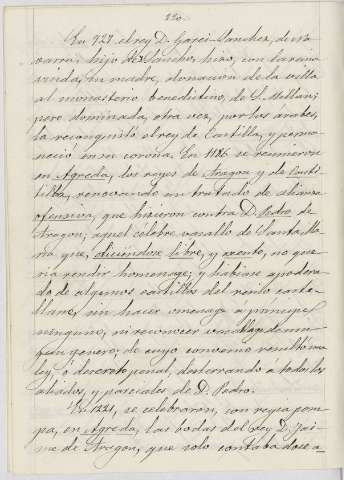 220.
En 927 el rey D. Garci-Sanchez, de Na-
varra, hijo de Sancho, hizo, con la reina
viuda, su madre, donacion de la villa
al monasterio benedictino, de S. Millan;
pero dominada, otra vez, por los árabes,
la reconquistó el rey de Castilla, y perma-
neció en su corona. En 1186 se reunieron
en Agreda, los reyes de Aragon y de Casti-
lla, renovando un tratado de alianza
ofensiva, que hicieron contra D. Pedro de
Aragon; aquel célebre vasallo de Santa Ma-
ria que, diciéndose libre, y exento, no que-
ria rendir homenage; y habiase apodera-
do de algunos castillos del reino caste-
llano, sin hacer omenage á príncipe
ninguno, ni reconocer vasallage de nin-
gun género; de cuyo convenio resultó una
ley, ó decreto penal, desterrando á todos los
aliados, y parciales de D. Pedro.
En 1221, se celebraron, con regia pom-
pa, en Agreda, las bodas del rey D. Jai-
me de Aragon, que solo contaba doce a-